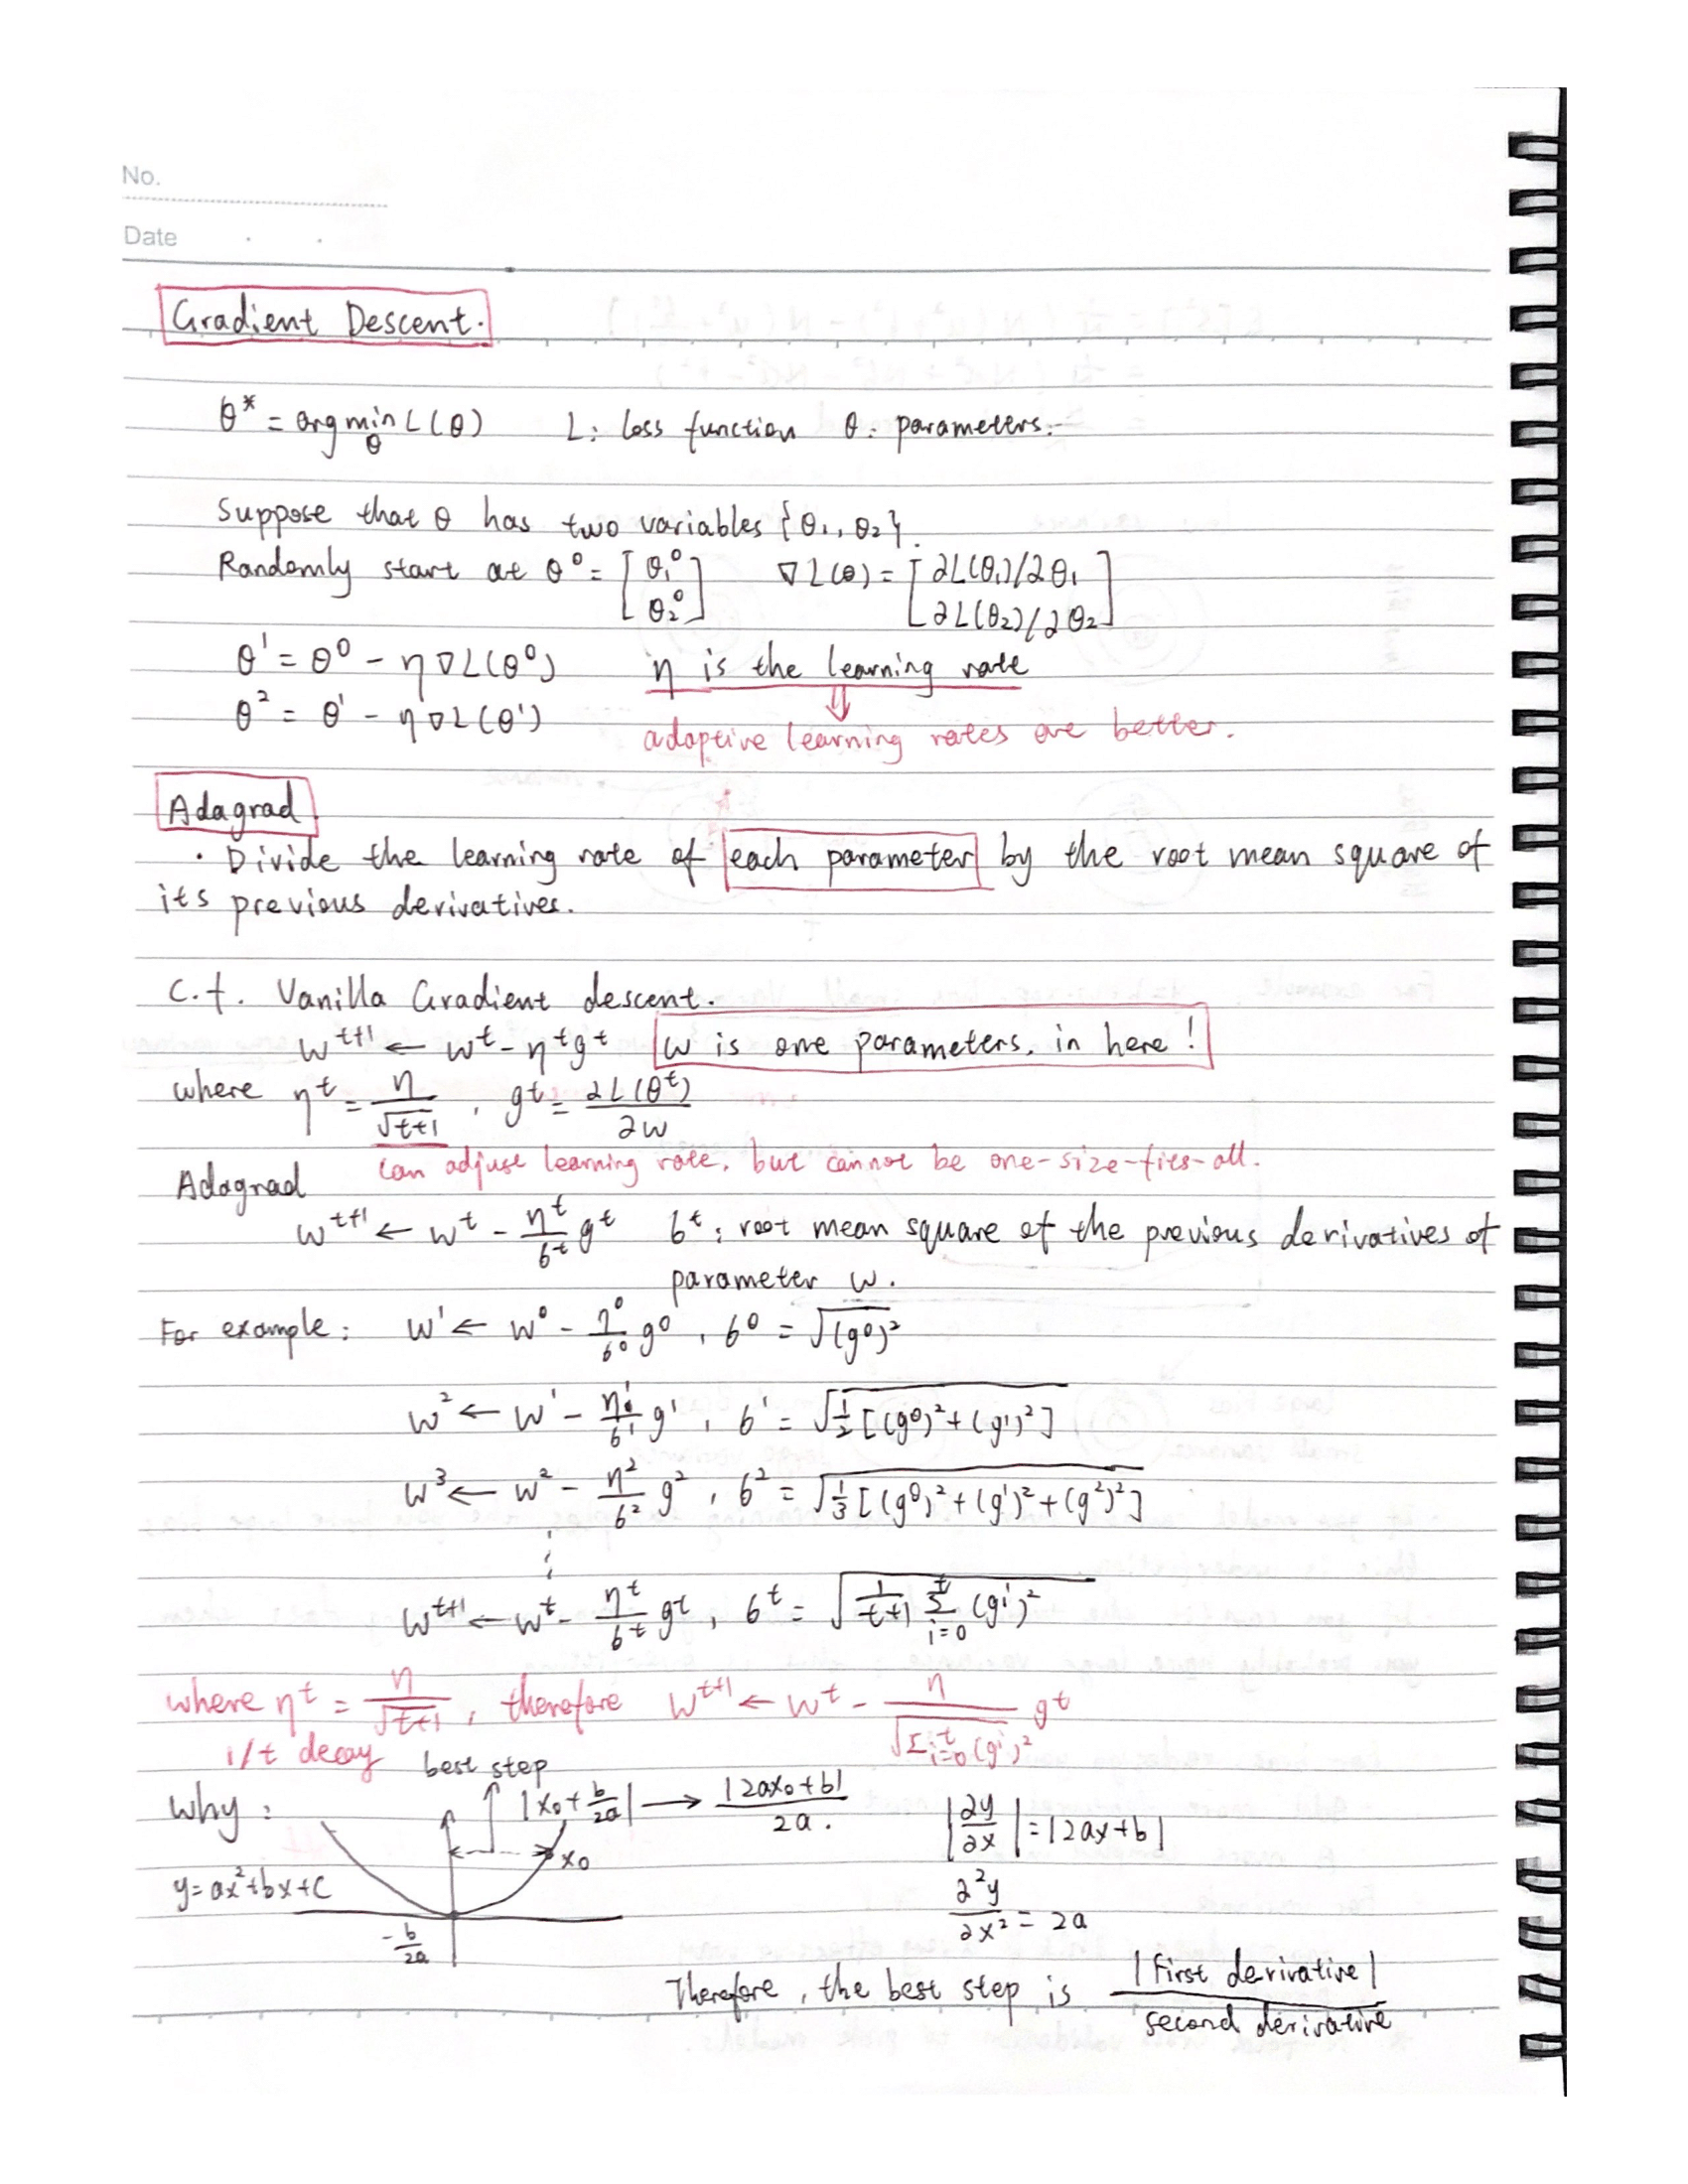 No.
Date . .
Gradient Descent.
θ* = arg min_θ L(θ)   L: loss function   θ: parameters.
Suppose that θ has two variables {θ₁, θ₂}.
Randomly start at θ⁰ = [θ₁⁰ θ₂⁰]   ∇L(θ) = [∂L(θ₁)/∂θ₁ ∂L(θ₂)/∂θ₂]
θ¹ = θ⁰ - η∇L(θ⁰)   η is the learning rate
θ² = θ¹ - η∇L(θ¹)   ⇓
adaptive learning rates are better.
Adagrad
· Divide the learning rate of each parameter by the root mean square of
its previous derivatives.
c.f. Vanilla Gradient descent.
w^{t+1} ← w^t - η^t g^t   w is one parameters. in here!
where η^t = η/√(t+1) , g^t = ∂L(θ^t)/∂w
can adjust learning rate, but cannot be one-size-fies-all.
Adagrad
w^{t+1} ← w^t - (η^t/6^t) g^t   6^t: root mean square of the previous derivatives of
parameter w.
For example: w¹ ← w⁰ - (η⁰/6⁰) g⁰ , 6⁰ = √((g⁰)²)
w² ← w¹ - (η¹/6¹) g¹ , 6¹ = √(1/2 [(g⁰)² + (g¹)²])
w³ ← w² - (η²/6²) g² , 6² = √(1/3 [(g⁰)² + (g¹)² + (g²)²])
⋮
w^{t+1} ← w^t - (η^t/6^t) g^t , 6^t = √(1/(t+1) Σ_{i=0}^{t} (g^i)²)
where η^t = η/√(t+1) , therefore w^{t+1} ← w^t - η/√(Σ_{i=0}^{t} (g^i)²) g^t
1/t decay
best step
Why: |x₀ + b/2a| → |2ax₀+b|/2a.   |∂y/∂x| = |2ax+b|
x₀
y=ax²+bx+c
∂²y/∂x² = 2a
-b/2a
Therefore, the best step is |First derivative|/second derivative